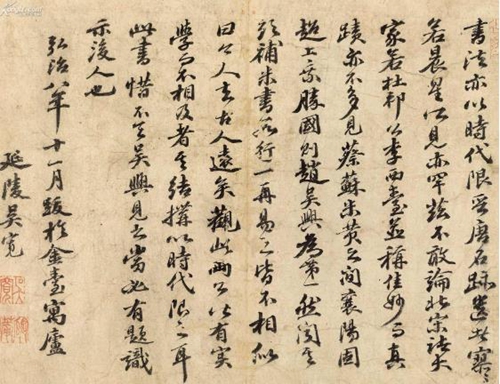 書法亦以時代限晉唐名跡遺世寥寥
若晨星所見亦罕茲不敢論北宋諸大
家若杜祁公李西臺並稱佳妙而真
蹟亦不多見蔡蘇米黃之間襄陽固
超上乘勝國則趙吳興為第一然聞其
欲補米書數行一再易之皆不相似
曰今人去古人遠矣觀此兩公以有實
學而不相及者其結搆以時代限之耳
此書惜不令吳興見之當必有題識
示後人也
弘治八年十一月跋於金臺寓廬
延陵吳寬